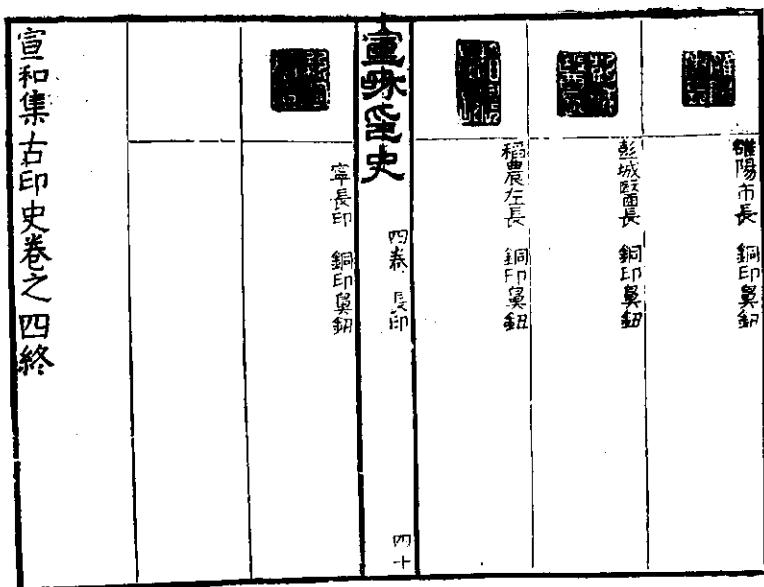 睢陽市長 銅印鼻鈕
彭城醫長 銅印鼻鈕
稻農左長 銅印鼻鈕
宣和印史 四卷 長印 四十
寧長印 銅印鼻鈕
宣和集古印史卷之四終